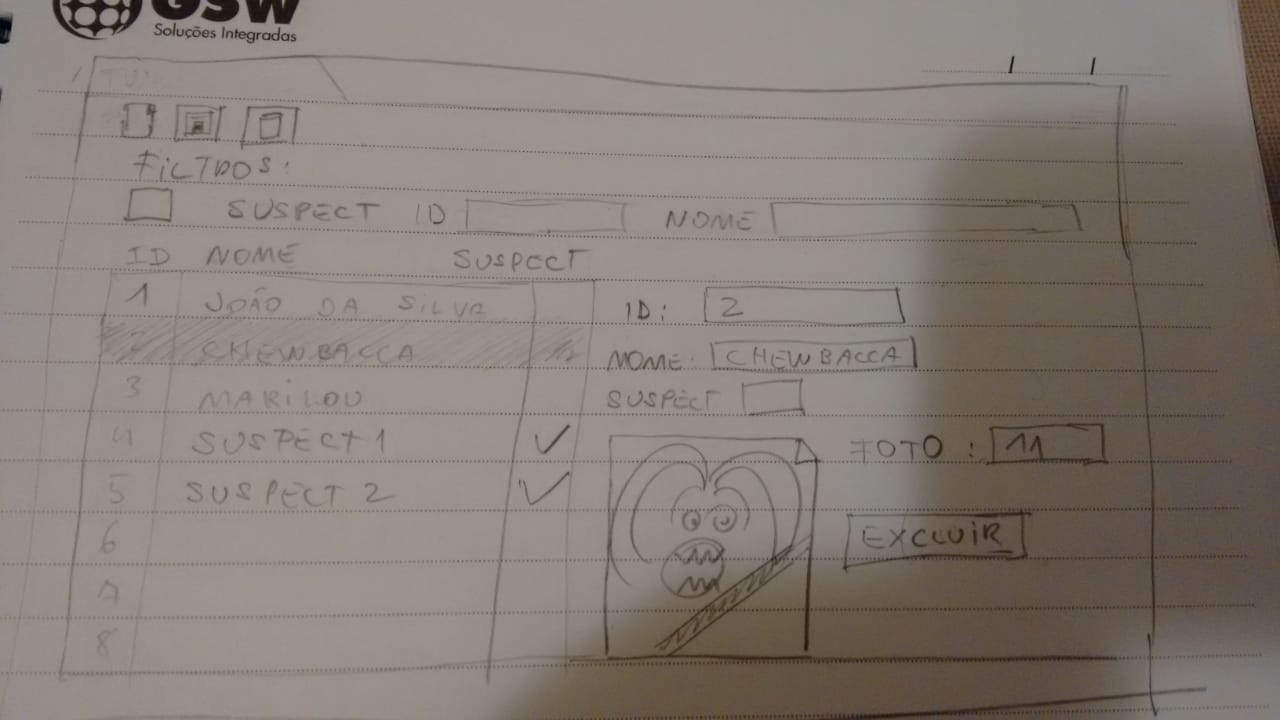 GSW
Soluções Integradas
FILTROS:
SUSPECT ID NOME
ID NOME SUSPECT
1 JOÃO DA SILVA
2 CHEWBACCA
3 MARILOU
4 SUSPECT 1
5 SUSPECT 2
6
7
8
ID: 2
NOME: CHEWBACCA
SUSPECT
FOTO : 11
EXCLUIR